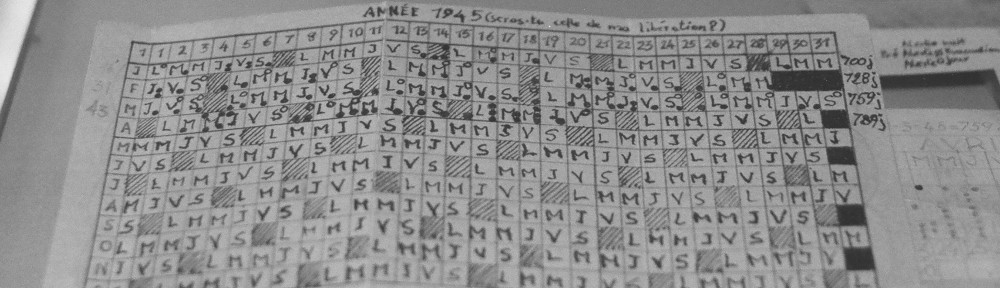 ANNÉE 1945 (seras-tu celle de ma libération?)
1 1 2 3 4 5 6 7 8 9 10 11 12 13 14 15 16 17 18 19 20 21 22 23 24 25 26 27 28 29 30 31
J L M M J V S L M M J V S L M M J V S L M M J V S L M M 700j
31 F J V S L M M J V S L M M J V S L M M J V S L M M 728j
43 M J V S L M M J V S L M M J V S L M M J V S L M M J V S 759j
A L M M J V S L M M J V S L M M J V S L M M J V S L 789j
M M M J V S L M M J V S L M M J V S L M M J V S L M M J
J V S L M M J V S L M M J V S L M M J V S L M M J V S
J L M M J V S L M M J V S L M M J V S L M M J V S L M
A M J V S L M M J V S L M M J V S L M M J V S L M M J V
S S L M M J V S L M M J V S L M M J V S L M M J V S
O L M M J V S L M M J V S L M M J V S L M M J V S L M M
N J V S L M M J V S L M M J V S L M M J V S L M M J V